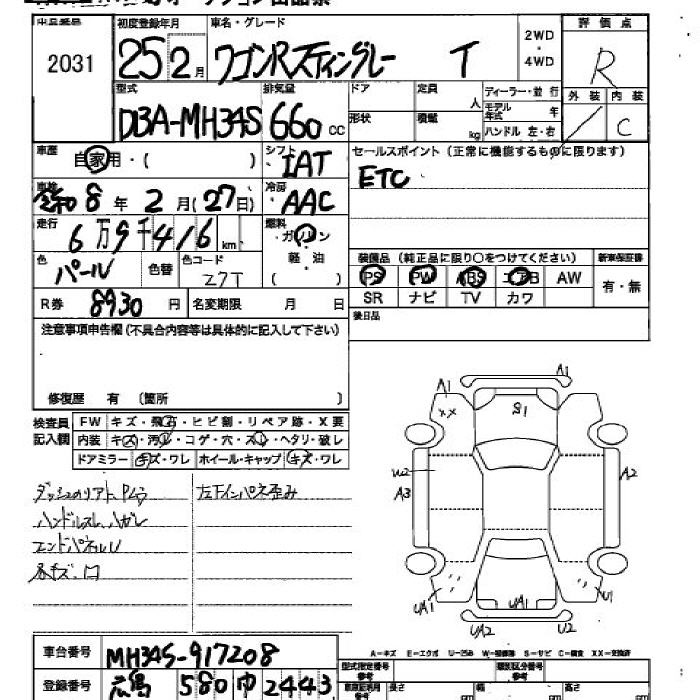 2031
初度登録年月 車名・グレード
25 2月 ワゴンRスティングレー T
2WD・4WD
評価点
R
外装 内装
C
型式 排気量 ドア 定員 人 ディーラー・並行
DBA-MH34S 660 cc 形状 積載 kg モデル年式 年
ハンドル 左・右
車歴 自家用・( ) シフト IAT
セールスポイント (正常に機能するものに限ります)
ETC
車検 令和 8年 2月(27日) 冷房 AAC
走行 6万9千416 km 燃料 ガソリン
軽・油
( )
色 パール 色替 色コード Z7T
装備品 (純正品に限り○をつけてください) 新車保証書
PS PW ABS エアB AW 有・無
SR ナビ TV カワ
R券 8930円 名変期限 月 日
後日品
注意事項申告欄(不具合内容等は具体的に記入して下さい)
修復歴 有 (箇所 )
検査員記入欄
FW キズ・飛石・ヒビ割・リペア跡・X要
内装 キズ・汚レ・コゲ・穴・スレ・ヘタリ・破レ
ドアミラー キズ・ワレ ホイール・キャップ キズ・ワレ
左下インパネ歪み
ハンドルスレ、ハガレ
A1 A1
XX S1
U2 A2
A3
UA1 UA1 U1
UA2 U2
A-キズ E-エクボ U-凹み W-補修跡 S-サビ C-腐食 XX-交換済
車台番号 MH34S-917208
型式指定番号 類別区分番号
登録番号 広島 580 ゆ 2443
長さ cm 幅 cm 高さ cm